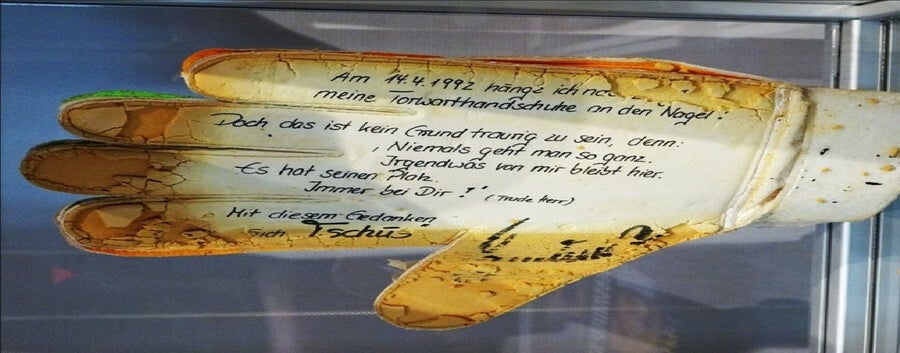 Am 14.4.1992 hänge ich
meine Torwarthandschuhe an den Nagel!
Doch das ist kein Grund traurig zu sein, denn:
, Niemals geht man so ganz.
Irgendwas von mir bleibt hier.
Es hat seinen Platz.
Immer bei Dir!" (Trude Herr)
Mit diesem Gedanken
sich Tschüs